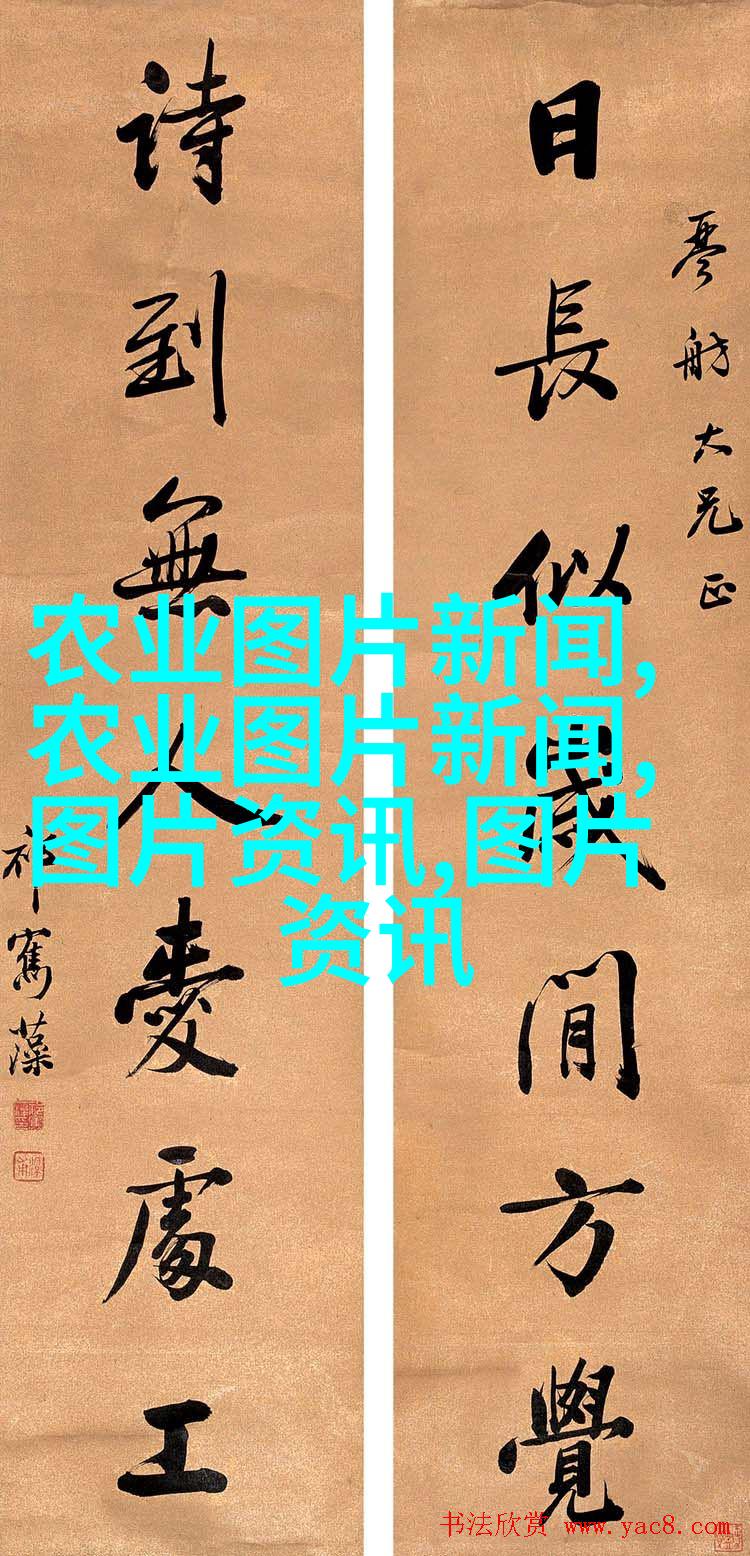 琴舫大兄正
日長似歲閒方覺
詩到無人愛處工
祁寯藻
农业图片新闻,
农业图片新闻,
图片资讯,图片
资讯
书法欣赏 www.yac8.com